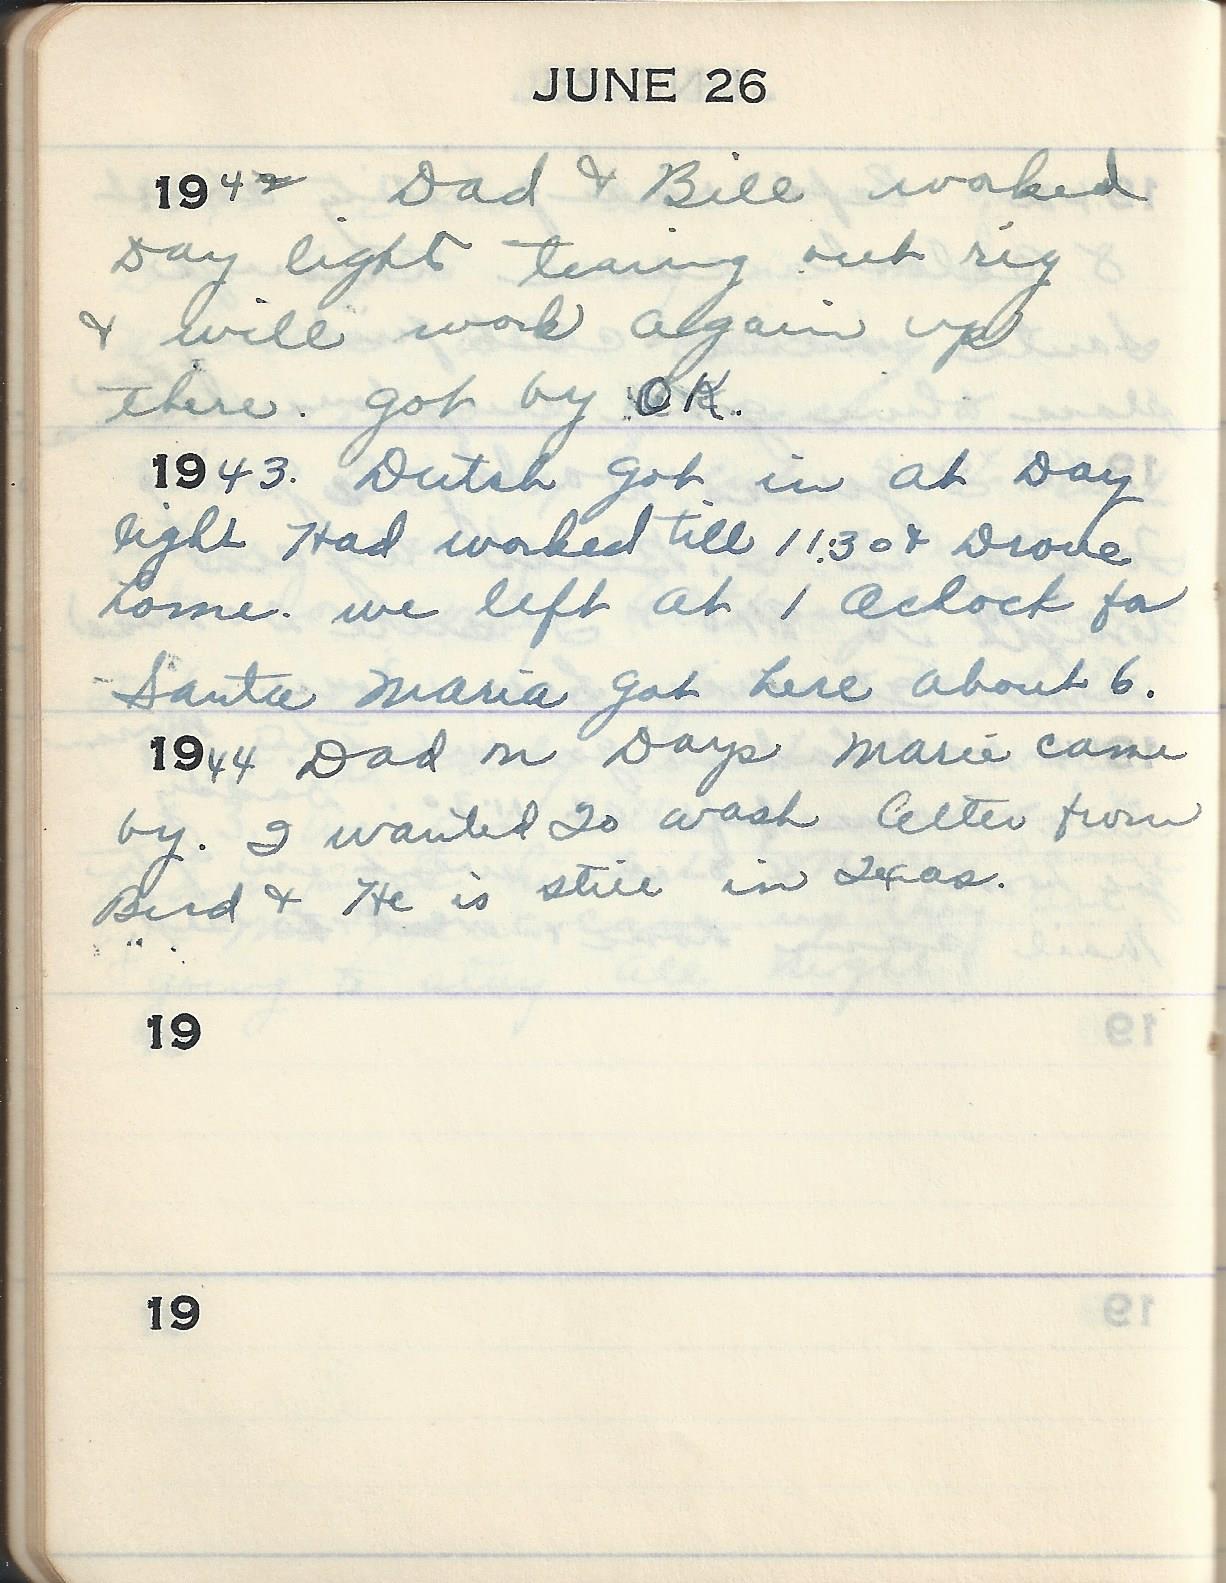 JUNE 26
1942 Dad & Bill worked
Day light tearing out rig
& will work again up
there. got by OK.
1943. Dutch got in at Day
light Had worked till 11:30 & Drove
home. we left at 1 Oclock for
Santa Maria got here about 6.
1944 Dad on Days Marie came
by. I wanted To wash letter from
Bird & He is still in Texas.
19
19